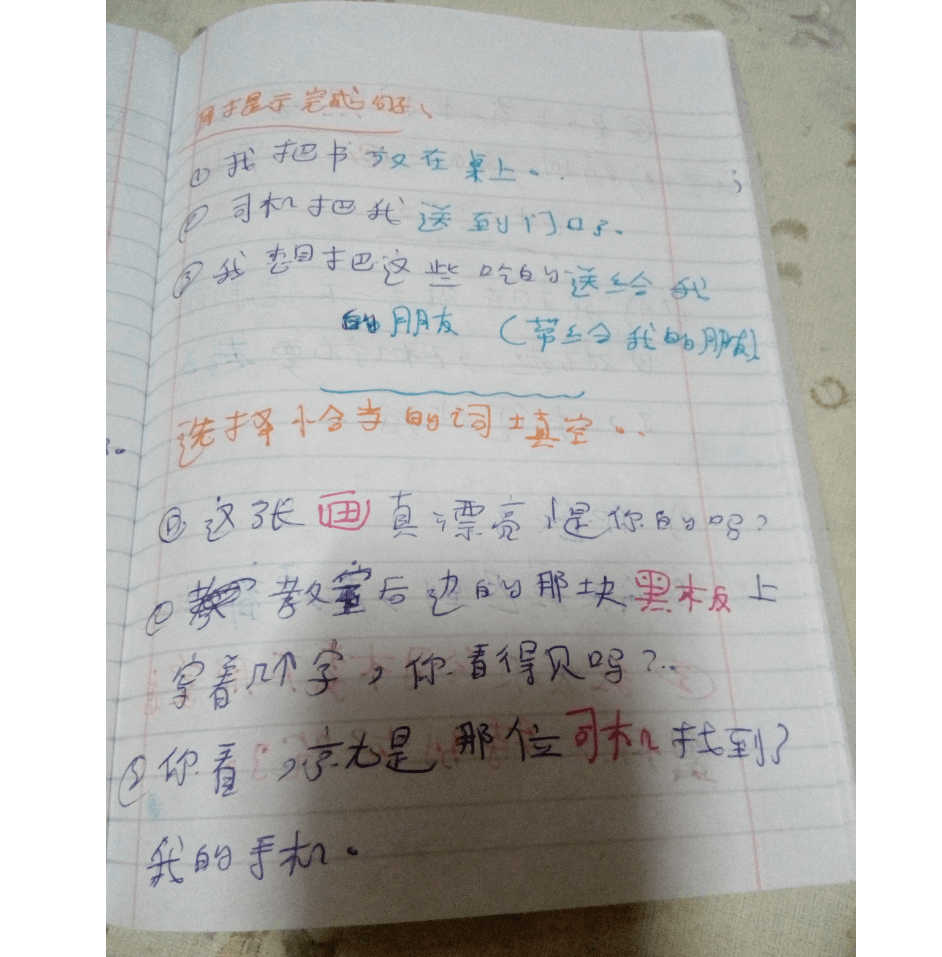 用提示完成句子、
① 我把书放在桌上。
② 司机把我送到门口。
③ 我想把这些吃的送给我
的朋友 (带给我的朋友)
选择恰当的词填空。
① 这张画真漂亮,是你的吗?
② 教室后边的那块黑板上
字着几个字,你看得见吗?
③ 你看,就是那位司机找到了
我的手机。